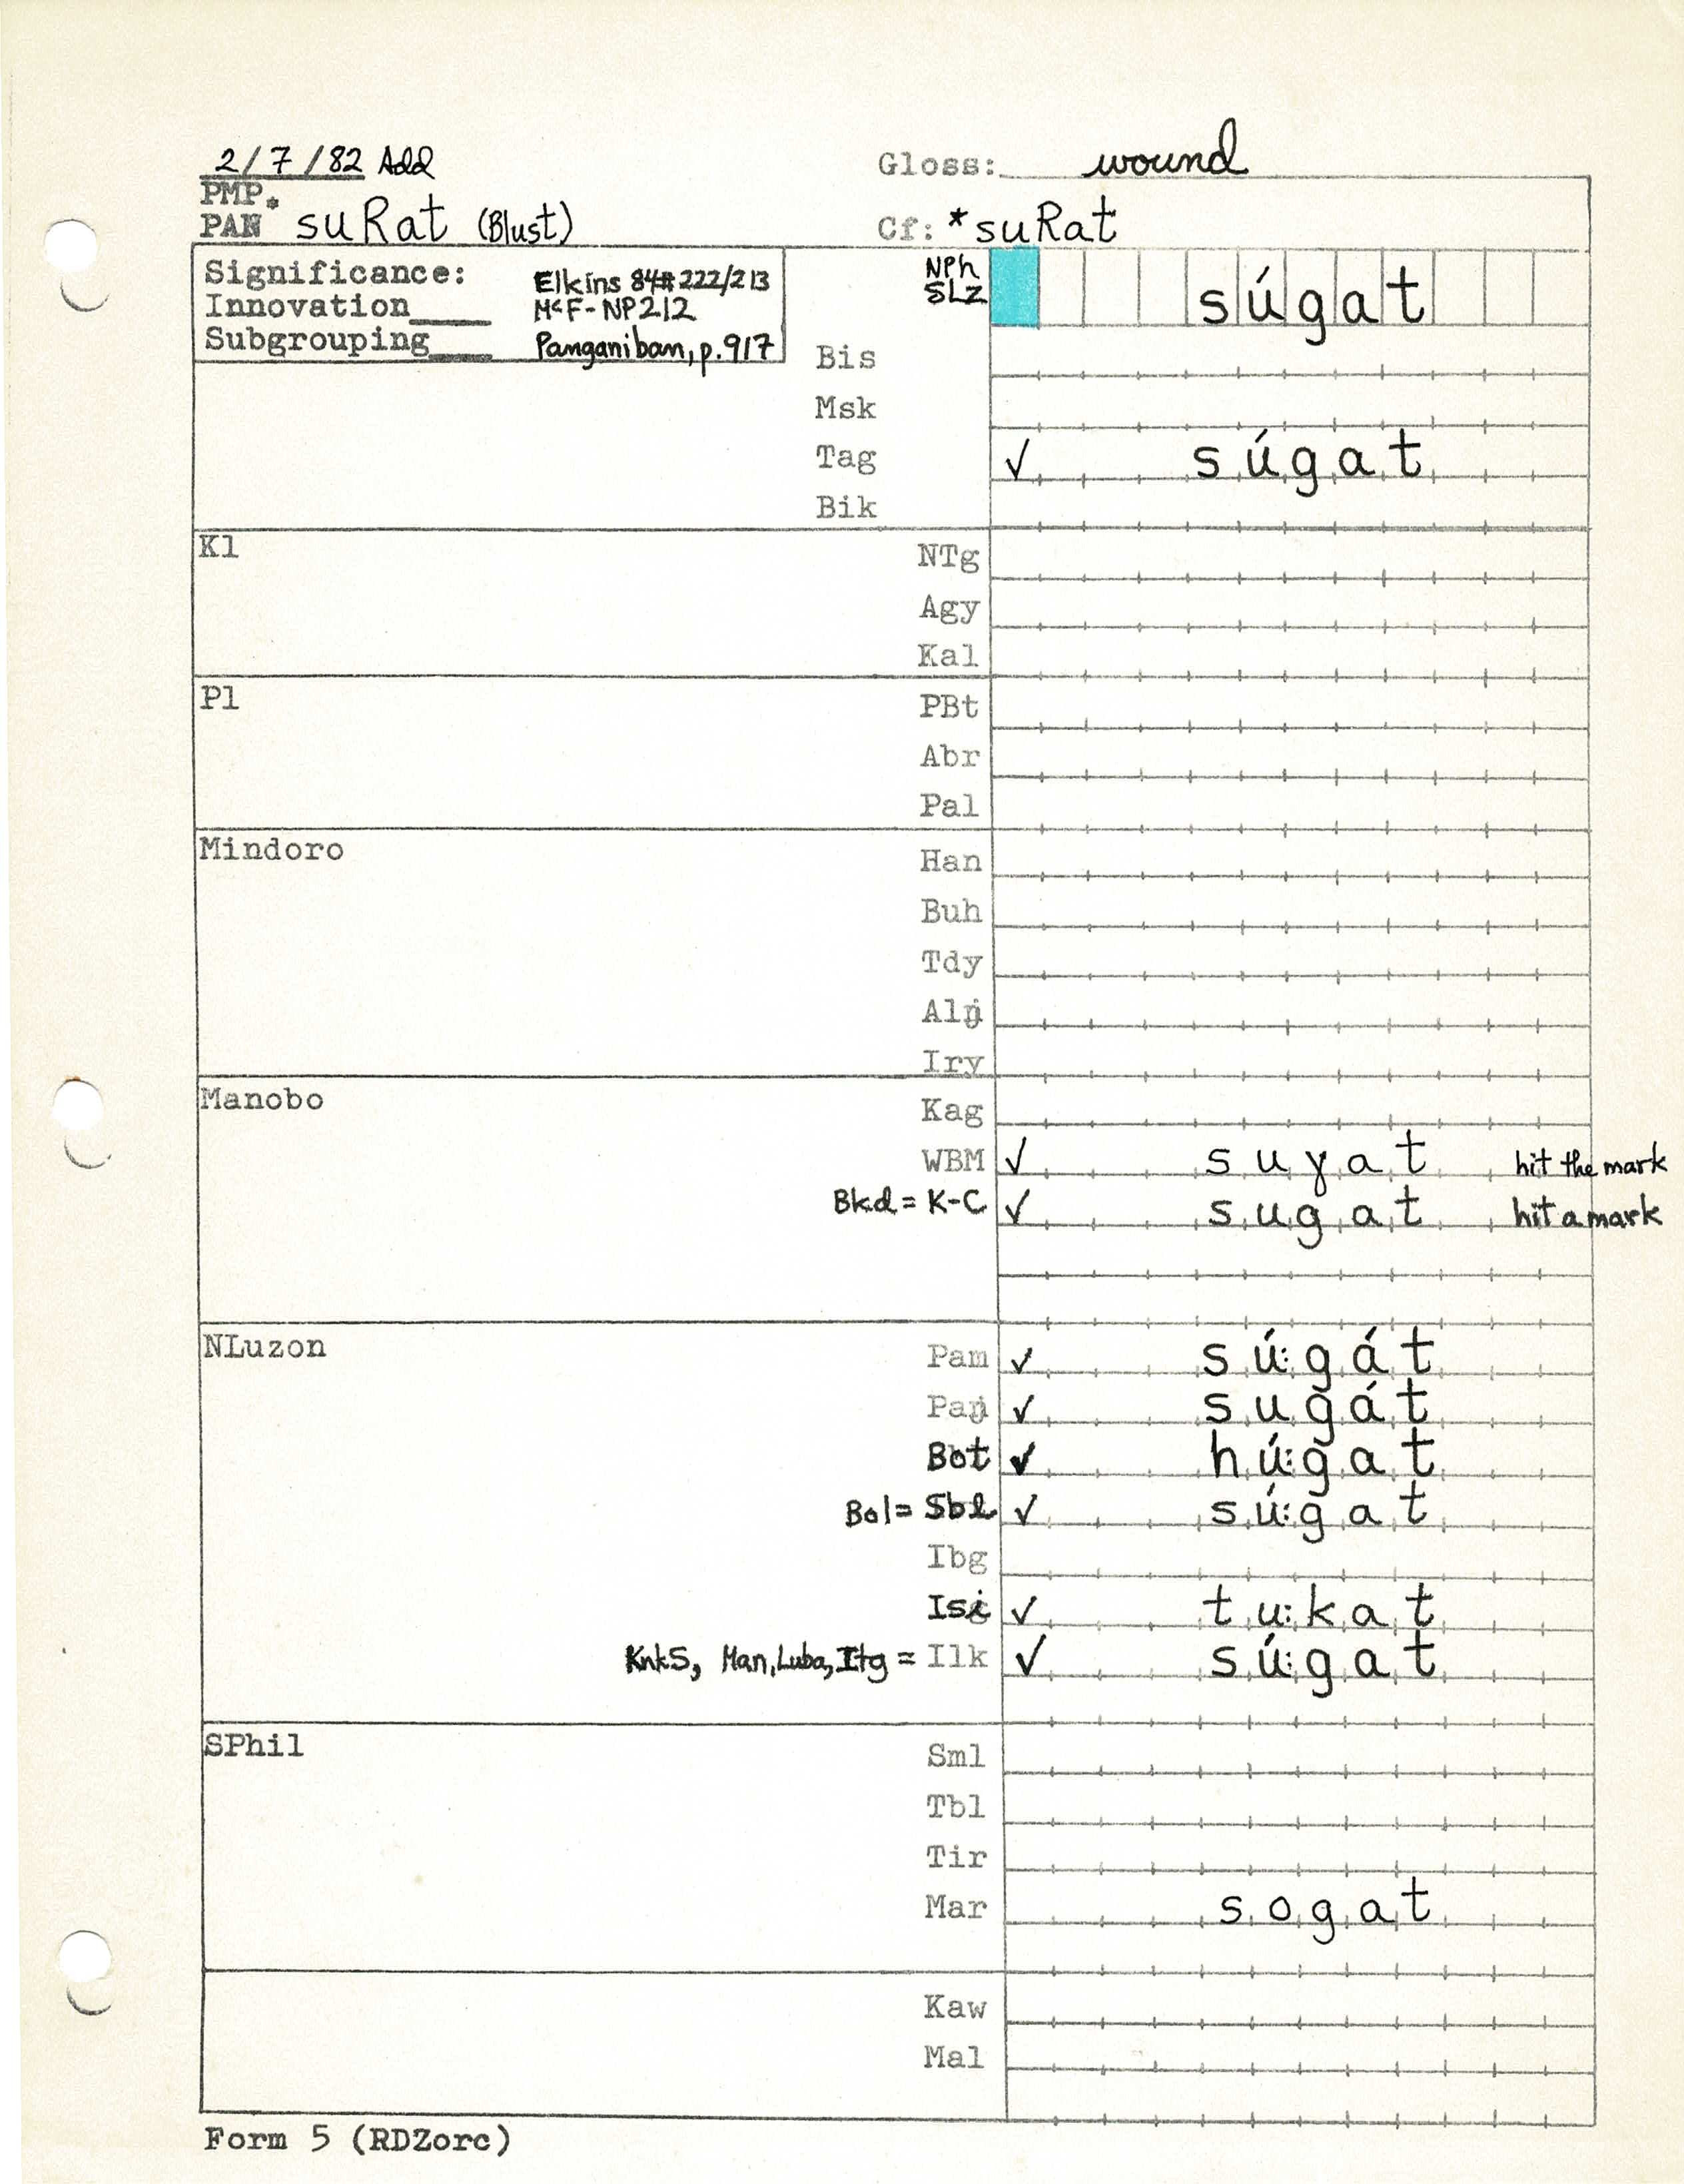 2/7/82 Add
Gloss: wound
PMP.
PAN suRat (Blust)
Cf: *suRat
Significance: Elkins 84#222/213
Innovation____ McF-NP212
Subgrouping____ Panganiban, p.917
NPh
SLz súgat
Bis
Msk
Tag ✓ súgat
Bik
Kl
NTg
Agy
Kal
Pl
PBt
Abr
Pal
Mindoro
Han
Buh
Tdy
Alŋ
Iry
Manobo
Kag
WBM ✓ suɣat hit the mark
Bkd = K-C ✓ sugat hit a mark
NLuzon
Pam ✓ sú:gát
Paŋ ✓ sugát
Bot ✓ hú:gat
Bol = Sbl ✓ sú:gat
Ibg
Isi ✓ tu:kat
KnkS, Man, Luba, Itg = Ilk ✓ sú:gat
SPhil
Sml
Tbl
Tir
Mar sogat
Kaw
Mal
Form 5 (RDZorc)